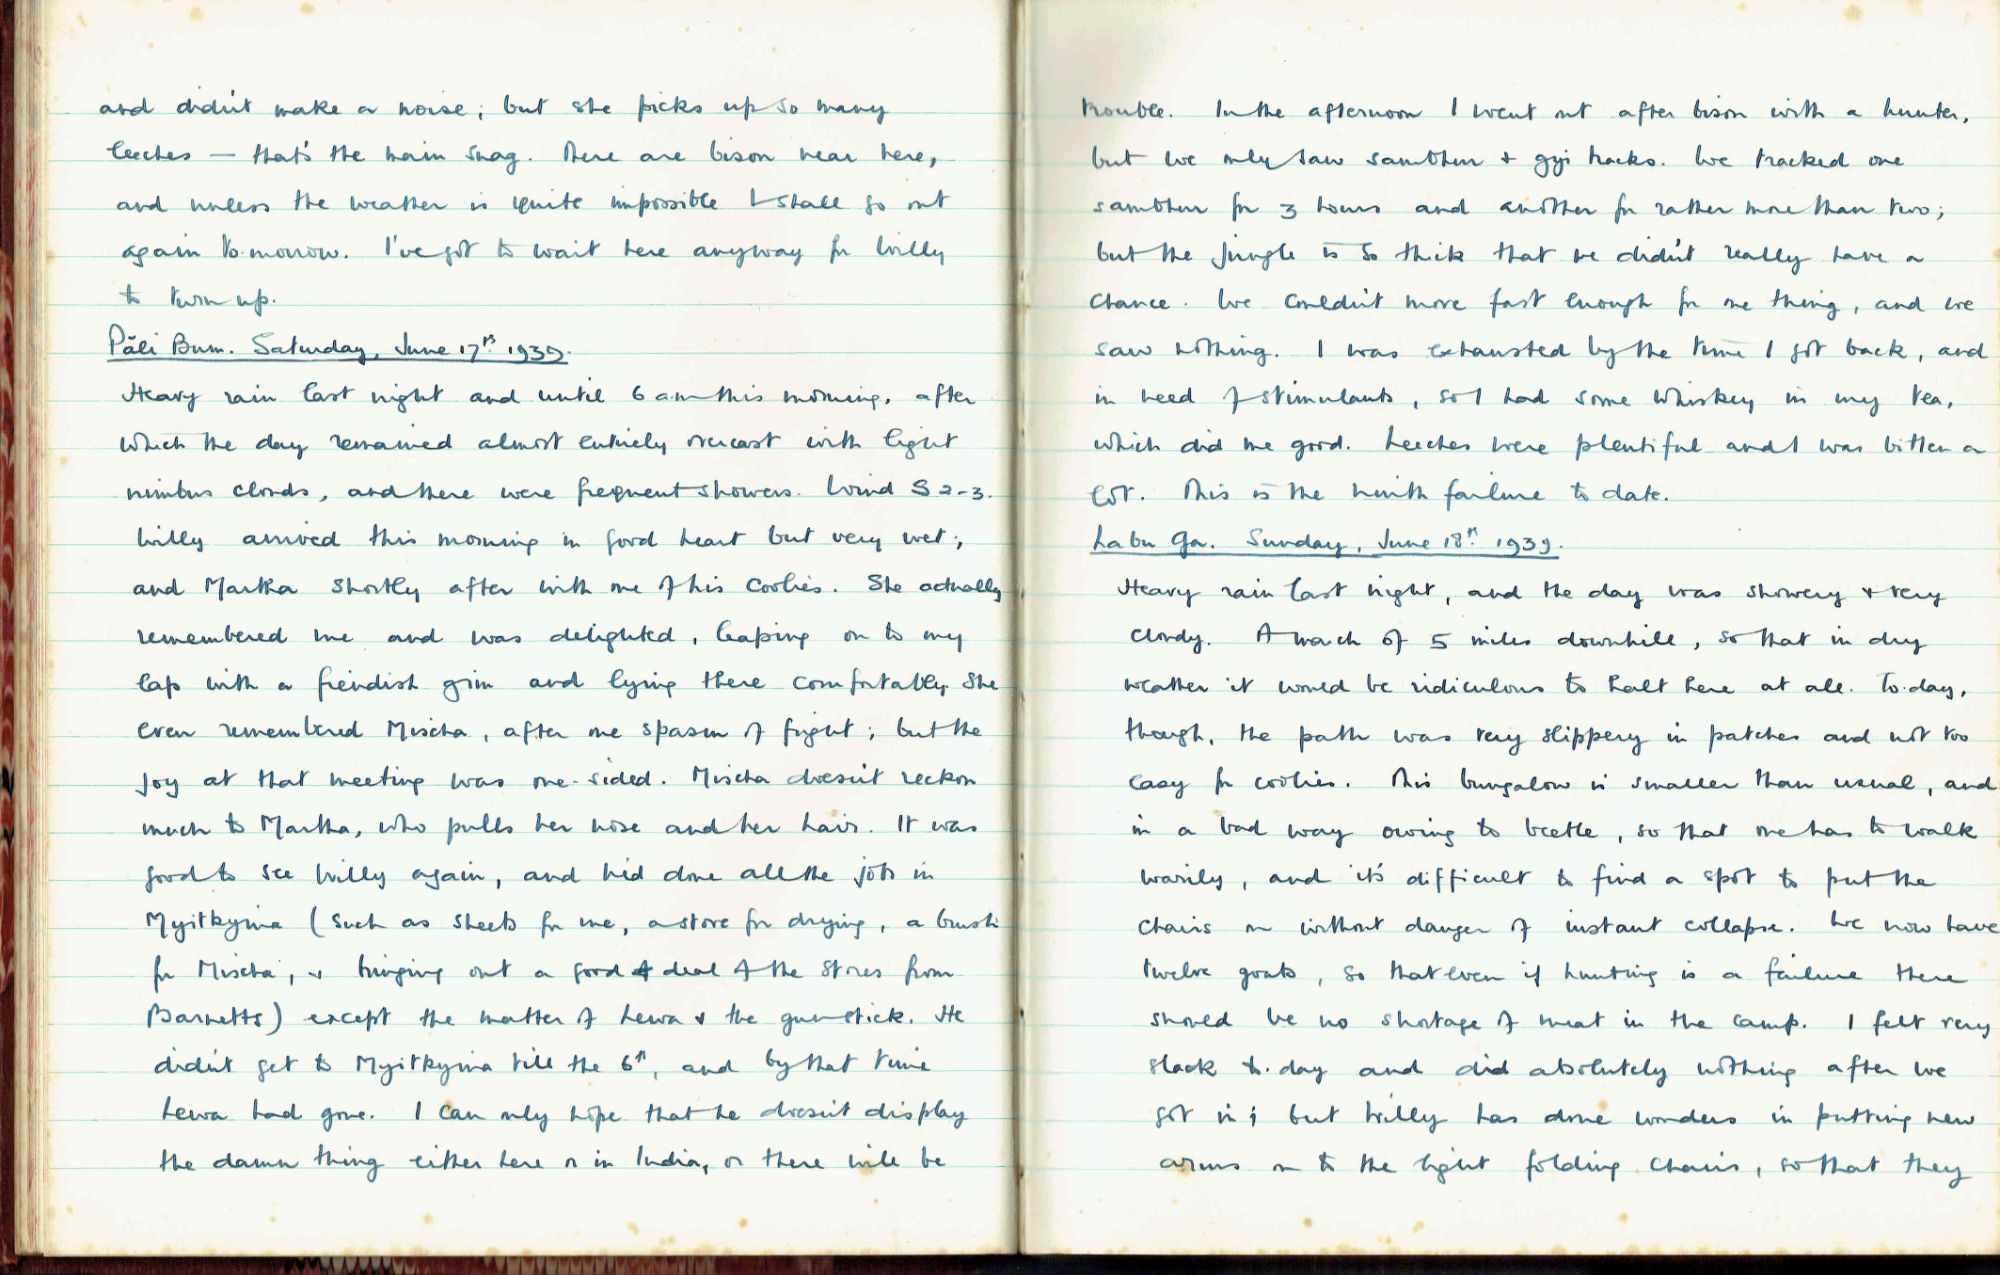 and didn't make a noise; but she picks up so many
leeches — that's the main snag. There are bison near here,
and unless the weather is quite impossible I shall go out
again to-morrow. I've got to wait here anyway for Willy
to turn up.
Păli Bum. Saturday, June 17th 1939.
Heavy rain last night and until 6 am this morning, after
which the day remained almost entirely overcast with light
nimbus clouds, and there were frequent showers. Wind S 2-3.
Willy arrived this morning in good heart but very wet;
and Martha shortly after with one of his coolies. She actually
remembered me and was delighted, leaping on to my
lap with a fiendish grin and lying there comfortably. She
even remembered Mischa, after one spasm of fright; but the
joy at that meeting was one-sided. Mischa doesn't reckon
much to Martha, who pulls her nose and her hair. It was
good to see Willy again, and he'd done all the jobs in
Myitkyina (such as sheets for me, a stove for drying, a brush
for Mischa, & bringing out a good deal of the stores from
Barnetts) except the matter of Lewa & the gun-stick. He
didn't get to Myitkyina till the 6th, and by that time
Lewa had gone. I can only hope that he doesn't display
the damn thing either here or in India, or there will be
trouble. In the afternoon I went out after bison with a hunter,
but we only saw sambhur & gyi tracks. We tracked one
sambhur for 3 hours and another for rather more than two;
but the jungle is so thick that we didn't really have a
chance. We couldn't move fast enough for one thing, and we
saw nothing. I was exhausted by the time I got back, and
in need of stimulants, so I had some whiskey in my tea,
which did me good. Leeches were plentiful and I was bitten a
lot. This is the ninth failure to date.
Labu Ga. Sunday, June 18th 1939.
Heavy rain last night, and the day was showery & very
cloudy. A march of 5 miles downhill, so that in dry
weather it would be ridiculous to halt here at all. To-day,
though, the path was very slippery in patches and not too
easy for coolies. This bungalow is smaller than usual, and
in a bad way owing to beetle, so that one has to walk
warily, and it's difficult to find a spot to put the
chairs on without danger of instant collapse. We now have
twelve goats, so that even if hunting is a failure there
should be no shortage of meat in the camp. I felt very
slack to-day and did absolutely nothing after we
got in; but Willy has done wonders in putting new
arms on to the light folding chairs, so that they